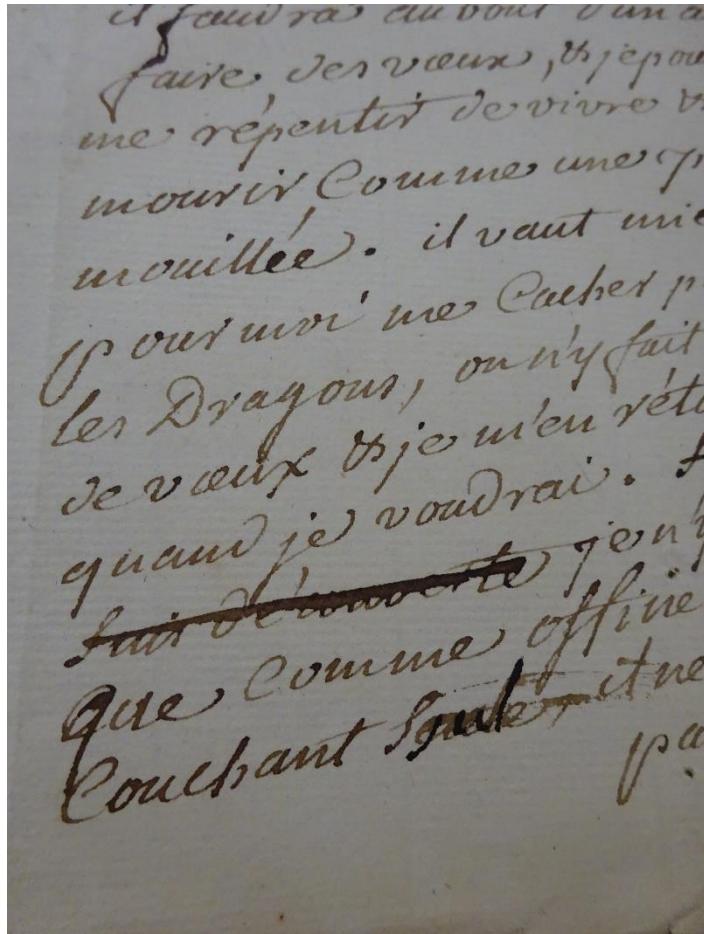 il faudra au bout d'un a
faire, des vœux, & je pou
me répentir de vivre &
mourir, Comme une p
mouillée. il vaut mie
pour moi me Cacher p
les Dragons, on n'y fait
de vœux & je m'en réto
quand je voudrai.
suis découverte je n'y
que Comme officie
Couchant seul et ne
pa